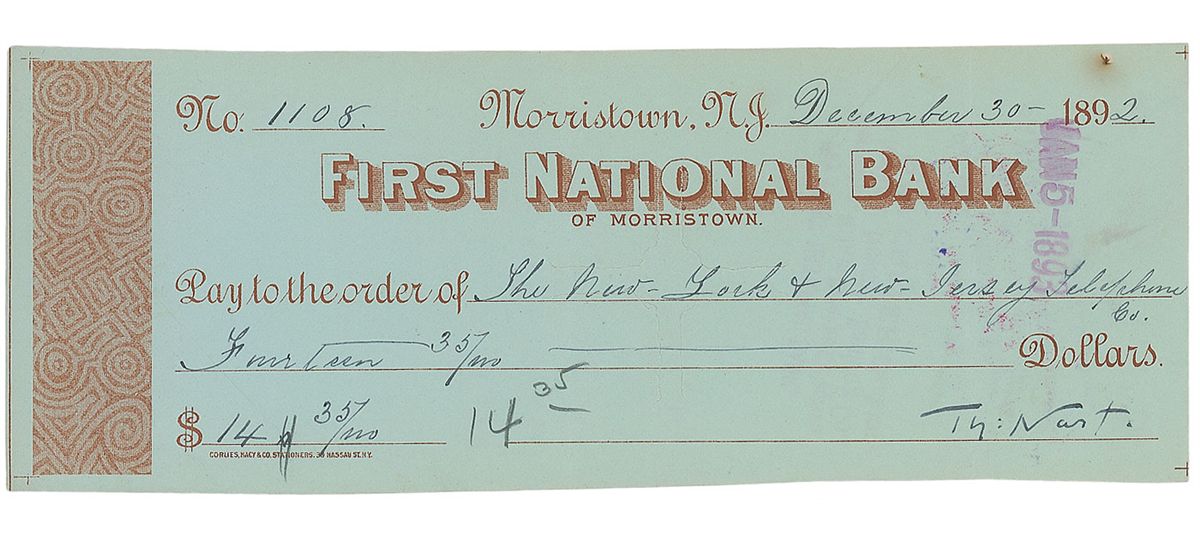 No. 1108. Morristown, N.J. December 30- 1892.
FIRST NATIONAL BANK
OF MORRISTOWN.
JAN 5-1893
Pay to the order of The New-York & New-Jersey Telephone
Co.
Fourteen 35/100 Dollars.
$ 14 35/100 14 35 Th: Nast.
CORLIES, MACY & CO. STATIONERS. 39 NASSAU ST. N.Y.